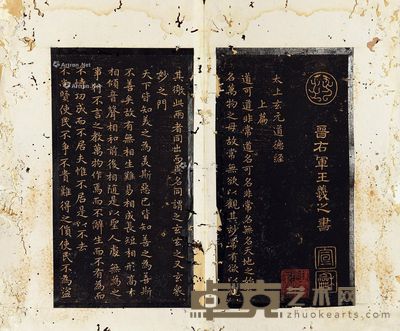 晉右軍王羲之書
太上玄元道德經
上篇
道可道非常道名可名非常名無名天地之始
名萬物之母故常無欲以觀其妙常有欲以觀
其徼此兩者同出而異名同謂之玄玄之又玄衆
妙之門
天下皆知美之為美斯惡已皆知善之為善斯
不善矣故有無相生難易相成長短相形高下
相傾音聲相和前後相隨是以聖人處無為之
事行不言之教萬物作焉而不辭生而不有為而
不恃功成而不居夫惟不居是以不去
不尚賢使民不爭不貴難得之貨使民不為盜
卓克艺术网